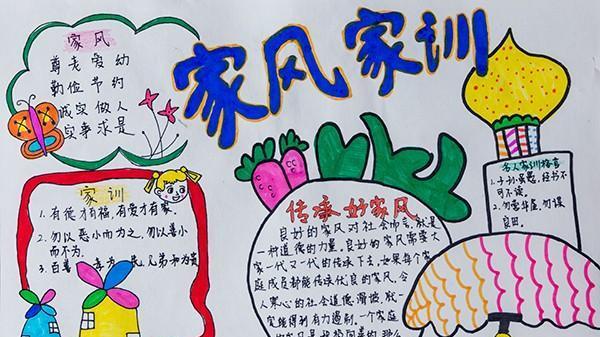 家风家训
家风
尊老爱幼
勤俭节约
诚实做人
实事求是
家训
1. 有德才有福,有爱才有家.
2. 勿以恶小而为之,勿以善小
而不为.
3. 百善 为 兄弟和为贵
传承好家风
良好的家风对社会而言,就是
一种道德的力量,良好的家风需要大
家一代又一代的传承下去,如果每个家
庭成员都能传承优良的家风,令
人寒心的社会道德滑坡,就一
定能得到有力遏制,一个家庭
的家风是
名人家训格言
1. 子孙虽愚,经书不
可不读.
2. 勿营华屋,勿谋
良田.